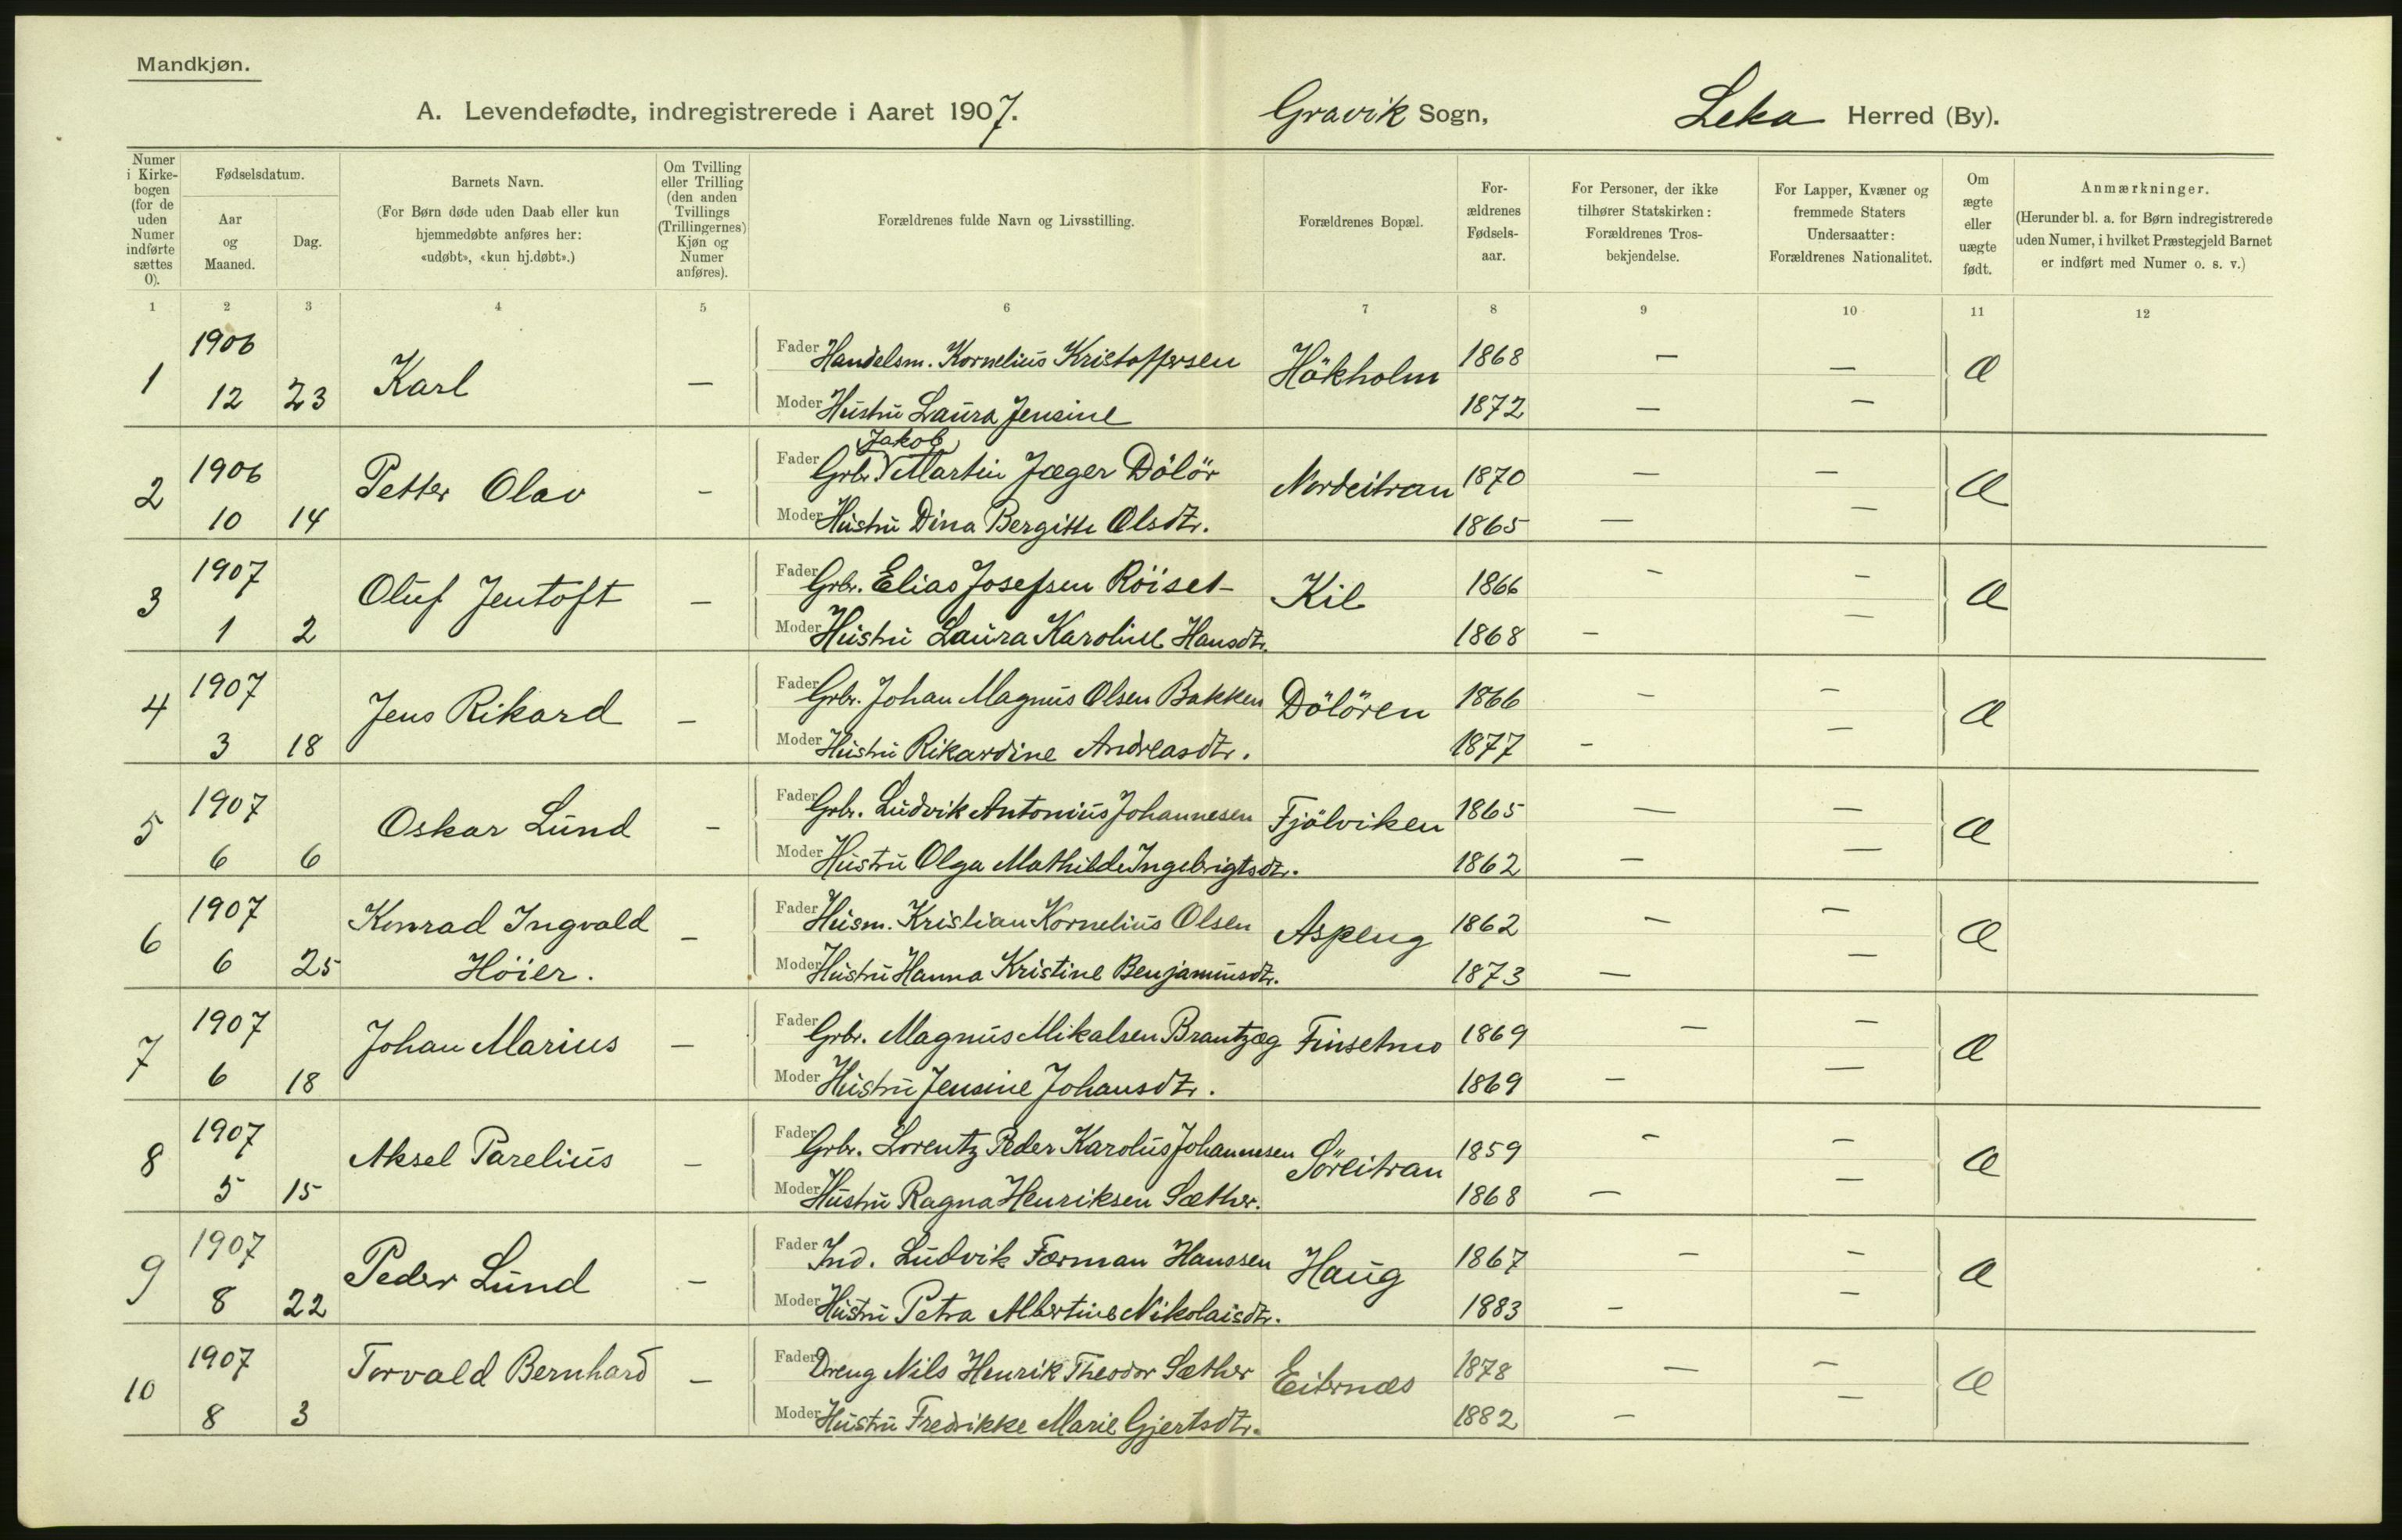 Mandkjøn.
A. Levendefødte, indregistrerede i Aaret 1907. Gravik Sogn, Leka Herred (By).
Numer i Kirke-bogen (for de uden Numer indførte sættes 0).
Fødselsdatum.
Aar og Maaned.
Dag.
Barnets Navn.
(For Børn døde uden Daab eller kun hjemmedøbte anføres her: «udøbt», «kun hj.døbt».)
Om Tvilling eller Trilling (den anden Tvillings (Trillingernes) Kjøn og Numer anføres).
Forældrenes fulde Navn og Livsstilling.
Forældrenes Bopæl.
For-ældrenes Fødsels-aar.
For Personer, der ikke tilhører Statskirken: Forældrenes Tros-bekjendelse.
For Lapper, Kvæner og fremmede Staters Undersaatter: Forældrenes Nationalitet.
Om ægte eller uægte født.
Anmærkninger.
(Herunder bl. a. for Børn indregistrerede uden Numer, i hvilket Præstegjeld Barnet er indført med Numer o. s. v.)
1 2 3 4 5 6 7 8 9 10 11 12
1 1906 Karl — Fader Handelsm. Kornelius Kristoffersen Hökholm 1868 — — Æ
12 23 Moder Hustru Laura Jensine 1872 — —
Jakob
2 1906 Petter Olav — Fader Grbr. Martin Jæger Dölör Nordeitran 1870 — — Æ
10 14 Moder Hustru Dina Bergitte Olsdtr. 1865 — —
3 1907 Oluf Jentoft — Fader Grbr. Elias Josefsen Röiset Kil 1866 — — Æ
1 2 Moder Hustru Laura Karoline Hansdtr. 1868 — —
4 1907 Jens Rikard — Fader Grbr. Johan Magnus Olsen Bakken Dölören 1866 — — Æ
3 18 Moder Hustru Rikardine Andreasdtr. 1877 — —
5 1907 Oskar Lund — Fader Grbr. Ludvik Antonius Johannesen Fjölviken 1865 — — Æ
6 6 Moder Hustru Olga Mathilde Ingebrigtsdtr. 1862 — —
6 1907 Konrad Ingvald Höier. — Fader Husm. Kristian Kornelius Olsen Aspeng 1862 — — Æ
6 25 Moder Hustru Hanna Kristine Benjaminsdtr. 1873 — —
7 1907 Johan Marius — Fader Grbr. Magnus Mikalsen Brantzæg Finsetmo 1869 — — Æ
6 18 Moder Hustru Jensine Johansdtr. 1869 — —
8 1907 Aksel Parelius — Fader Grbr. Lorentz Peder Karolus Johannesen Söreitran 1859 — — Æ
5 15 Moder Hustru Ragna Henriksen Sæther. 1868 — —
9 1907 Peder Lund — Fader Ind. Ludvik Færman Hanssen Haug 1867 — — Æ
8 22 Moder Hustru Petra Albertine Nikolaisdtr. 1883 — —
10 1907 Torvald Bernhard — Fader Dreng Nils Henrik Theodor Sæther Eiternæs 1878 — — Æ
8 3 Moder Hustru Fredrikke Marie Gjertsdtr. 1882 — —